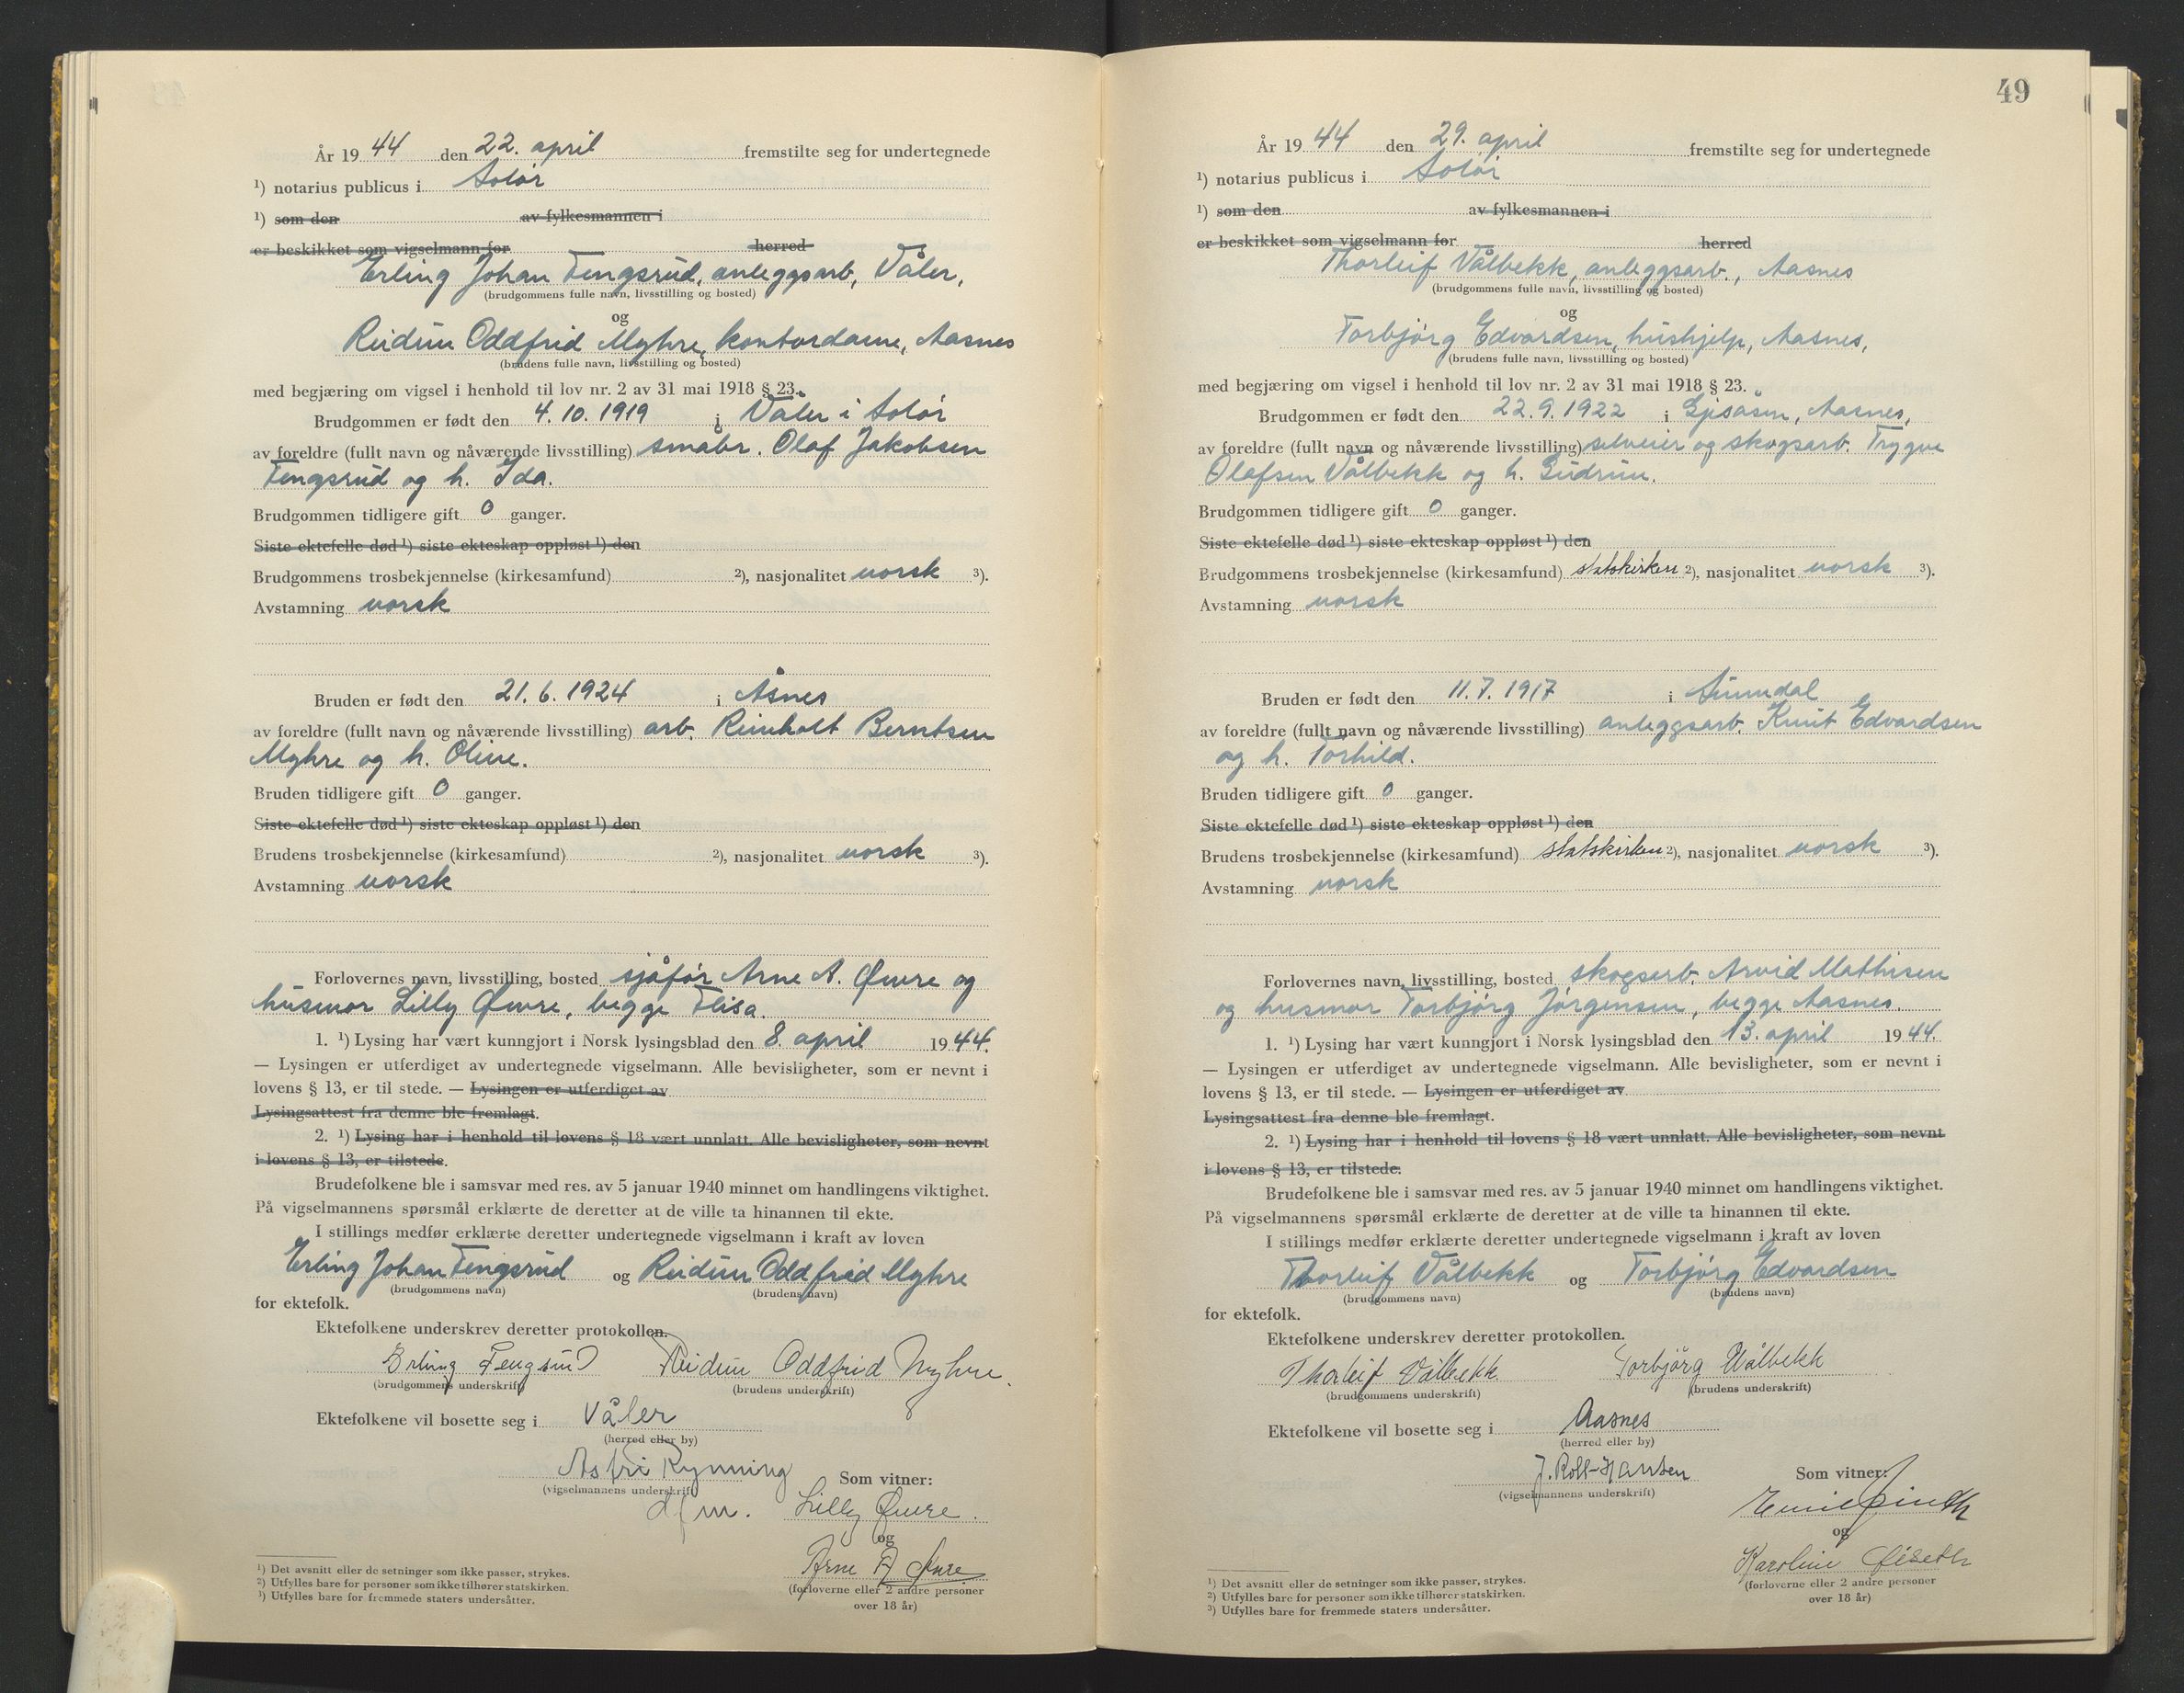 År 19 44 den 22. april fremstilte seg for undertegnede
¹) notarius publicus i Solør
¹) som den av fylkesmannen i
er beskikket som vigselmann for herred
Erling Johan Fengsrud, anleggsarb, Våler,
(brudgommens fulle navn, livsstilling og bosted)
og
Reidun Oddfrid Myhre, kontordame, Aasnes
(brudens fulle navn, livsstilling og bosted)
med begjæring om vigsel i henhold til lov nr. 2 av 31 mai 1918 § 23.
Brudgommen er født den 4.10.1919 i Våler i Solør
av foreldre (fullt navn og nåværende livsstilling) småbr. Olaf Jakobsen
Fengsrud og h. Ida.
Brudgommen tidligere gift 0 ganger.
Siste ektefelle død ¹) siste ekteskap oppløst ¹) den
Brudgommens trosbekjennelse (kirkesamfund) ²), nasjonalitet norsk ³).
Avstamning norsk
Bruden er født den 21.6.1924 i Åsnes
av foreldre (fullt navn og nåværende livsstilling) arb. Reinholt Berntsen
Myhre og h. Oline.
Bruden tidligere gift 0 ganger.
Siste ektefelle død ¹) siste ekteskap oppløst ¹) den
Brudens trosbekjennelse (kirkesamfund) ²), nasjonalitet norsk ³).
Avstamning norsk
Forlovernes navn, livsstilling, bosted sjåfør Arne A. Øvere og
husmor Lilly Øvere, begge Flisa.
1. ¹) Lysing har vært kunngjort i Norsk lysingsblad den 8. april 19 44.
— Lysingen er utferdiget av undertegnede vigselmann. Alle bevisligheter, som er nevnt i
lovens § 13, er til stede. — Lysingen er utferdiget av
Lysingsattest fra denne ble fremlagt.
2. ¹) Lysing har i henhold til lovens § 18 vært unnlatt. Alle bevisligheter, som nevnt
i lovens § 13, er tilstede.
Brudefolkene ble i samsvar med res. av 5 januar 1940 minnet om handlingens viktighet.
På vigselmannens spørsmål erklærte de deretter at de ville ta hinannen til ekte.
I stillings medfør erklærte deretter undertegnede vigselmann i kraft av loven
Erling Johan Fengsrud og Reidun Oddfrid Myhre
(brudgommens navn) (brudens navn)
for ektefolk.
Ektefolkene underskrev deretter protokollen.
Erling Fengsrud Reidun Oddfrid Myhre.
(brudgommens underskrift) (brudens underskrift)
Ektefolkene vil bosette seg i Våler
(herred eller by)
Astri Rynning Som vitner:
(vigselmannens underskrift)
dfm. Lilly Øvere.
og
Arne A Øvere
(forloverne eller 2 andre personer
over 18 år)
¹) Det avsnitt eller de setninger som ikke passer, strykes.
²) Utfylles bare for personer som ikke tilhører statskirken.
³) Utfylles bare for fremmede staters undersåtter.
49
År 19 44 den 29. april fremstilte seg for undertegnede
¹) notarius publicus i Solør
¹) som den av fylkesmannen i
er beskikket som vigselmann for herred
Thorleif Vålbekk, anleggsarb., Aasnes
(brudgommens fulle navn, livsstilling og bosted)
og
Torbjørg Edvardsen, hushjelp, Aasnes,
(brudens fulle navn, livsstilling og bosted)
med begjæring om vigsel i henhold til lov nr. 2 av 31 mai 1918 § 23.
Brudgommen er født den 22.9.1922 i Gjesåsen, Aasnes,
av foreldre (fullt navn og nåværende livsstilling) selveier og skogsarb. Trygve
Olafsen Vålbekk og h. Gudrun.
Brudgommen tidligere gift 0 ganger.
Siste ektefelle død ¹) siste ekteskap oppløst ¹) den
Brudgommens trosbekjennelse (kirkesamfund) statskirken ²), nasjonalitet norsk ³).
Avstamning norsk
Bruden er født den 11.7.1917 i Sunndal
av foreldre (fullt navn og nåværende livsstilling) anleggsarb. Knut Edvardsen
og h. Torhild.
Bruden tidligere gift 0 ganger.
Siste ektefelle død ¹) siste ekteskap oppløst ¹) den
Brudens trosbekjennelse (kirkesamfund) statskirken ²), nasjonalitet norsk ³).
Avstamning norsk
Forlovernes navn, livsstilling, bosted skogsarb. Arvid Mathisen
og husmor Torbjørg Jørgensen, begge Aasnes.
1. ¹) Lysing har vært kunngjort i Norsk lysingsblad den 13. april 19 44.
— Lysingen er utferdiget av undertegnede vigselmann. Alle bevisligheter, som er nevnt i
lovens § 13, er til stede. — Lysingen er utferdiget av
Lysingsattest fra denne ble fremlagt.
2. ¹) Lysing har i henhold til lovens § 18 vært unnlatt. Alle bevisligheter, som nevnt
i lovens § 13, er tilstede.
Brudefolkene ble i samsvar med res. av 5 januar 1940 minnet om handlingens viktighet.
På vigselmannens spørsmål erklærte de deretter at de ville ta hinannen til ekte.
I stillings medfør erklærte deretter undertegnede vigselmann i kraft av loven
Thorleif Vålbekk og Torbjørg Edvardsen
(brudgommens navn) (brudens navn)
for ektefolk.
Ektefolkene underskrev deretter protokollen.
Thorleif Vålbekk Torbjørg Wålbekk
(brudgommens underskrift) (brudens underskrift)
Ektefolkene vil bosette seg i Aasnes
(herred eller by)
J. Roll-Hansen Som vitner:
(vigselmannens underskrift)
Emil
og
Karoline
(forloverne eller 2 andre personer
over 18 år)
¹) Det avsnitt eller de setninger som ikke passer, strykes.
²) Utfylles bare for personer som ikke tilhører statskirken.
³) Utfylles bare for fremmede staters undersåtter.